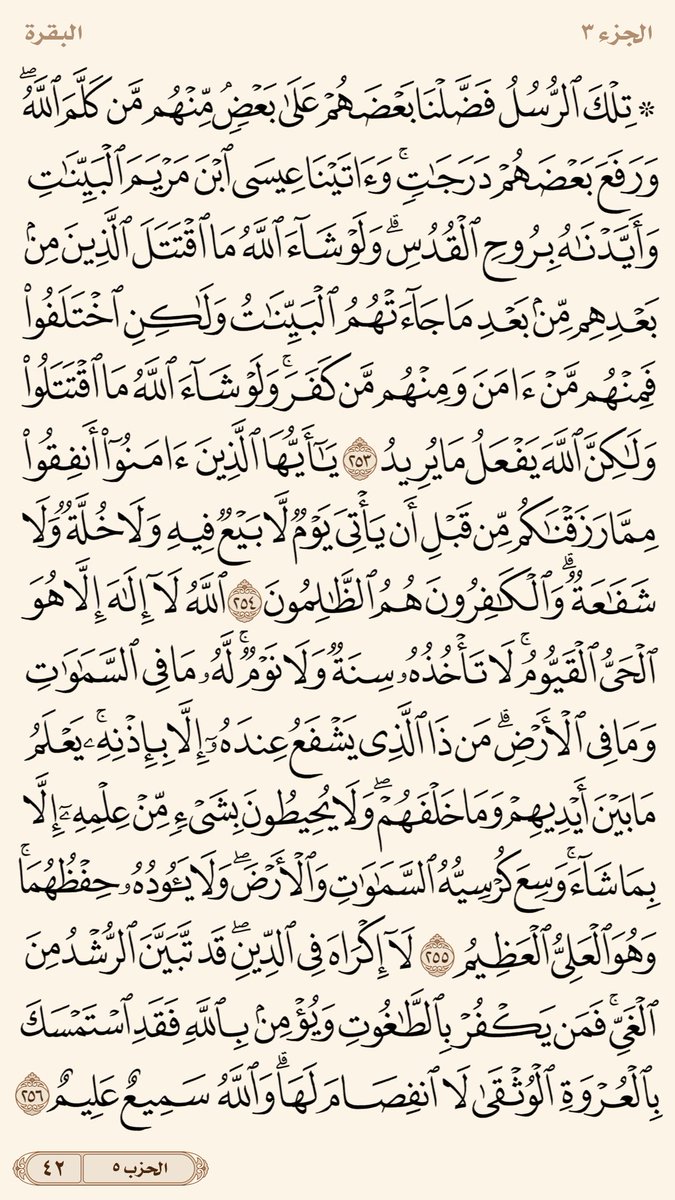 الجزء ٣
البقرة
۞ تِلْكَ ٱلرُّسُلُ فَضَّلْنَا بَعْضَهُمْ عَلَىٰ بَعْضٍۘ مِّنْهُم مَّن كَلَّمَ ٱللَّهُۖ
وَرَفَعَ بَعْضَهُمْ دَرَجَٰتٍۚ وَءَاتَيْنَا عِيسَى ٱبْنَ مَرْيَمَ ٱلْبَيِّنَٰتِ
وَأَيَّدْنَٰهُ بِرُوحِ ٱلْقُدُسِۗ وَلَوْ شَآءَ ٱللَّهُ مَا ٱقْتَتَلَ ٱلَّذِينَ مِنۢ
بَعْدِهِم مِّنۢ بَعْدِ مَا جَآءَتْهُمُ ٱلْبَيِّنَٰتُ وَلَٰكِنِ ٱخْتَلَفُوا۟
فَمِنْهُم مَّنْ ءَامَنَ وَمِنْهُم مَّن كَفَرَۚ وَلَوْ شَآءَ ٱللَّهُ مَا ٱقْتَتَلُوا۟
وَلَٰكِنَّ ٱللَّهَ يَفْعَلُ مَا يُرِيدُ ٢٥٣ يَٰٓأَيُّهَا ٱلَّذِينَ ءَامَنُوٓا۟ أَنفِقُوا۟
مِمَّا رَزَقْنَٰكُم مِّن قَبْلِ أَن يَأْتِىَ يَوْمٌ لَّا بَيْعٌ فِيهِ وَلَا خُلَّةٌ وَلَا
شَفَٰعَةٌۗ وَٱلْكَٰفِرُونَ هُمُ ٱلظَّٰلِمُونَ ٢٥٤ ٱللَّهُ لَآ إِلَٰهَ إِلَّا هُوَ
ٱلْحَىُّ ٱلْقَيُّومُۚ لَا تَأْخُذُهُۥ سِنَةٌ وَلَا نَوْمٌۚ لَّهُۥ مَا فِى ٱلسَّمَٰوَٰتِ
وَمَا فِى ٱلْأَرْضِۗ مَن ذَا ٱلَّذِى يَشْفَعُ عِندَهُۥٓ إِلَّا بِإِذْنِهِۦۚ يَعْلَمُ
مَا بَيْنَ أَيْدِيهِمْ وَمَا خَلْفَهُمْۖ وَلَا يُحِيطُونَ بِشَىْءٍ مِّنْ عِلْمِهِۦٓ إِلَّا
بِمَا شَآءَۚ وَسِعَ كُرْسِيُّهُ ٱلسَّمَٰوَٰتِ وَٱلْأَرْضَۖ وَلَا يَـُٔودُهُۥ حِفْظُهُمَاۚ
وَهُوَ ٱلْعَلِىُّ ٱلْعَظِيمُ ٢٥٥ لَآ إِكْرَاهَ فِى ٱلدِّينِۖ قَد تَّبَيَّنَ ٱلرُّشْدُ مِنَ
ٱلْغَىِّۚ فَمَن يَكْفُرْ بِٱلطَّٰغُوتِ وَيُؤْمِنۢ بِٱللَّهِ فَقَدِ ٱسْتَمْسَكَ
بِٱلْعُرْوَةِ ٱلْوُثْقَىٰ لَا ٱنفِصَامَ لَهَاۗ وَٱللَّهُ سَمِيعٌ عَلِيمٌ ٢٥٦
الحزب ٥
٤٢